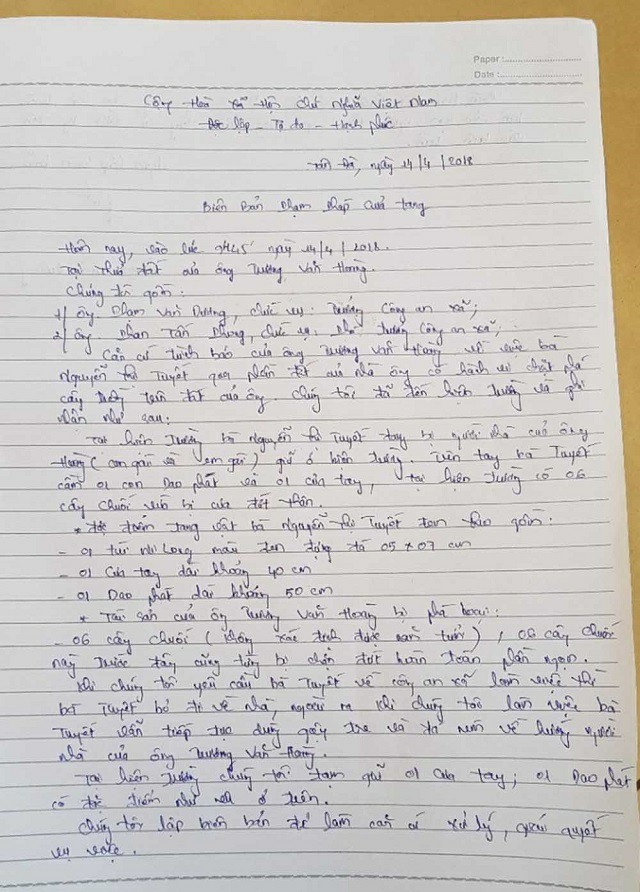 Paper :
Date :
Cộng Hoà Xã Hội Chủ Nghĩa Việt Nam
Độc lập - Tự do - Hạnh phúc
ngày 14/4/2018
Biên Bản Phạm Pháp Quả Tang
Hôm nay, vào lúc 9h45' ngày 14/4/2018.
Tại thửa đất của ông Trương Văn Hoàng.
Chúng tôi gồm:
1/ Ông. Phạm Văn Dương, chức vụ: Trưởng Công an xã;
2/ Ông. Phan Tấn Dũng, chức vụ: Phó trưởng Công an xã;
Căn cứ trình báo của ông Trương Văn Hoàng về việc bà
Nguyễn Thị Tuyết qua phần đất của nhà ông có hành vi chặt phá
cây trồng trên đất của ông. Chúng tôi đã đến hiện trường và ghi
nhận như sau:
Tại hiện trường bà Nguyễn Thị Tuyết đang bị người nhà của ông
Hoàng (con gái và em gái) giữ ở hiện trường. Trên tay bà Tuyết
cầm 01 con Dao phát và 01 cưa tay, tại hiện trường có 06
cây chuối vừa bị cưa đứt thân.
* Đặc điểm tang vật bà Nguyễn Thị Tuyết đem theo gồm:
- 01 túi ni long màu đen đựng đá 05 x 07 cm
- 01 Cưa tay dài khoảng 40 cm
- 01 Dao phát dài khoảng 50 cm
* Tài sản của ông Trương Văn Hoàng bị phá hoại:
- 06 cây chuối (không xác định được năm tuổi), 06 cây chuối
này trước đây cũng từng bị chặn đứt hoàn toàn phần ngọn.
Khi chúng tôi yêu cầu bà Tuyết về công an xã làm việc thì
bà Tuyết bỏ đi về nhà, ngoài ra khi chúng tôi làm việc bà
Tuyết vẫn tiếp tục dùng gậy tre và đá ném về hướng người
nhà của ông Trương Văn Hoàng.
Tại hiện trường chúng tôi tạm giữ 01 Cưa tay; 01 Dao phát
có đặc điểm như nêu ở trên.
Chúng tôi lập biên bản để làm căn cứ xử lý, giải quyết
vụ việc.